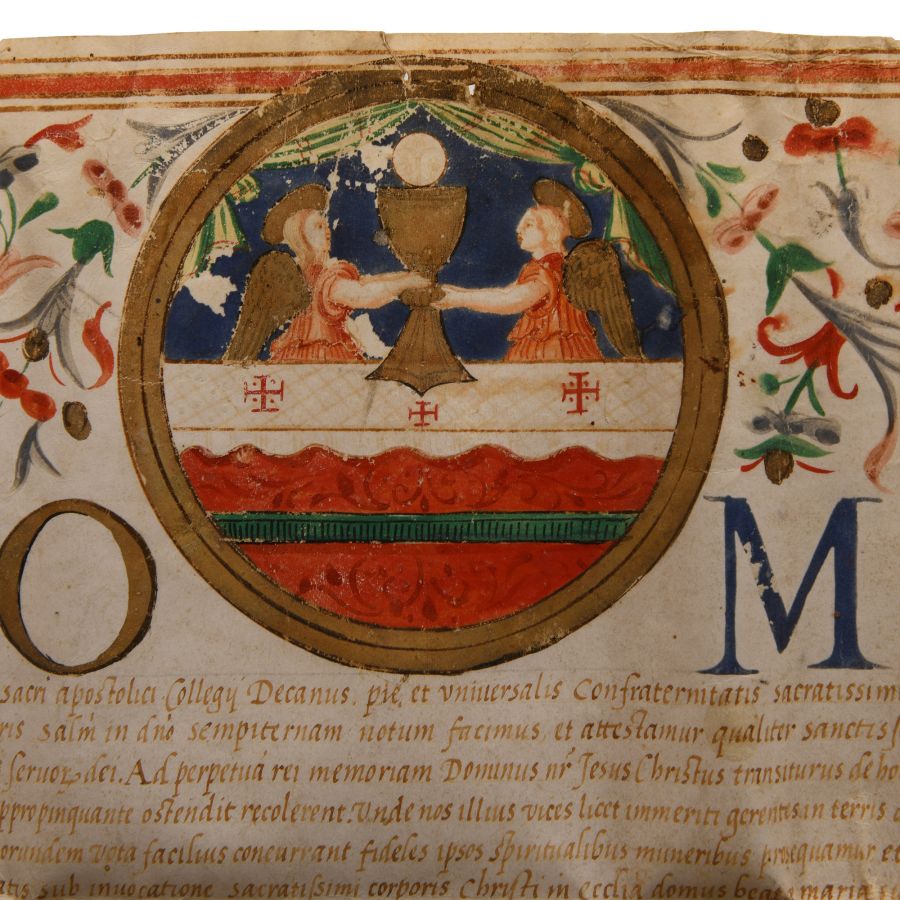 O M
sacri apostolici Collegij Decanus, pie et vniuersalis Confraternitatis sacratissimi
ris salm in dno sempiternam notum facimus, et attestamur qualiter sanctis
seruor dei. Ad perpetua rei memoriam Dominus nr Jesus Christus transiturus de ho
ppropinquante ostendit recolerent. Vnde nos illius vices licet immeriti gerentes in terris
orundem vota facilius concurrant fideles ipsos spiritualibus muneribus prosequamur et
atis sub inuocatione sacratissimi corporis Christi in ecclia domus beate maria